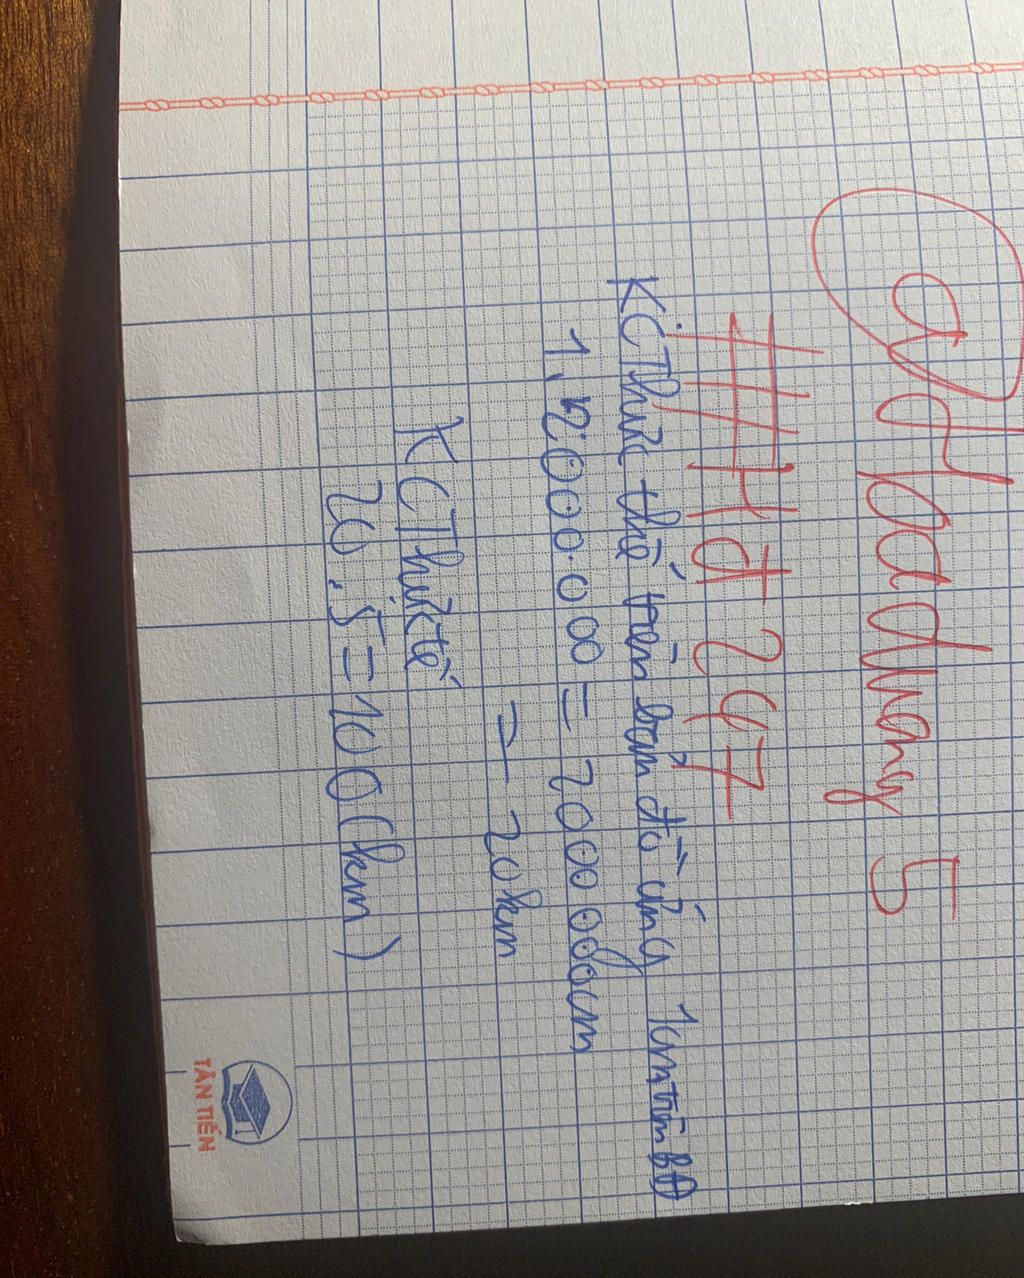 a, Hđ dưỡng 5
### Hđ 247
KC Thức thế trên bản đồ ứng 1cm trên BĐ
1.2000.000 = 2000 000cm
= 20km
KC Thực tế
20.5=100(km)
TÂN TIẾN